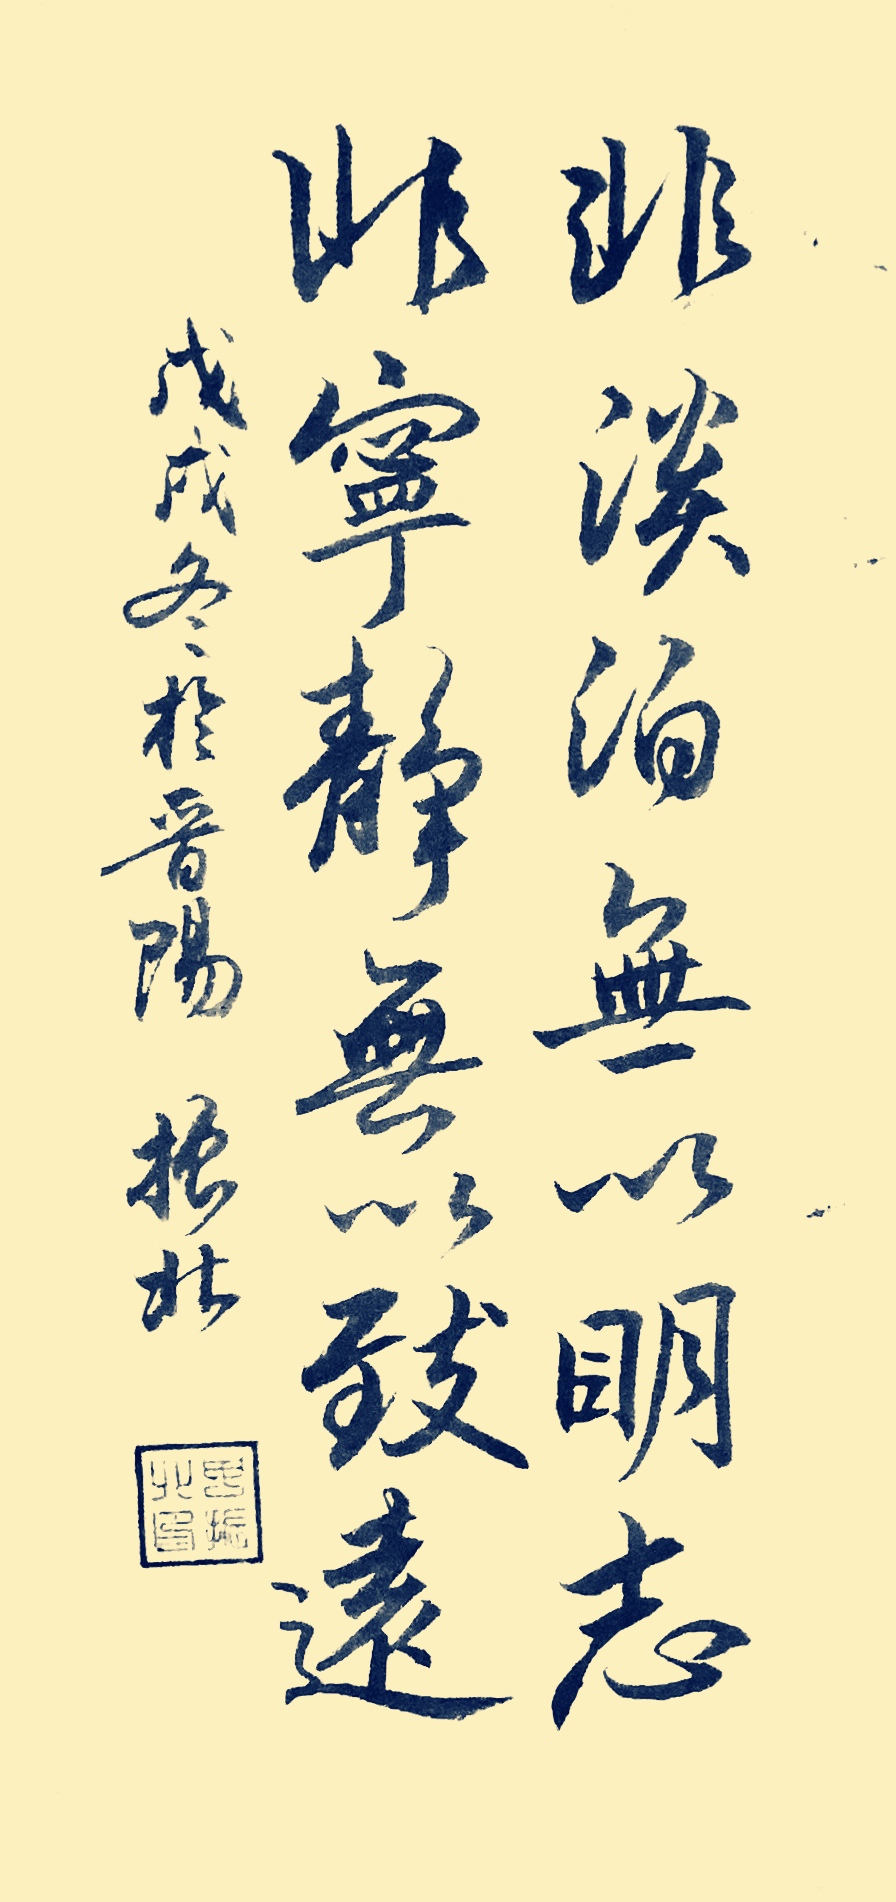 非淡泊無以明志
非寧靜無以致遠
戊戌冬於晉陽 振北